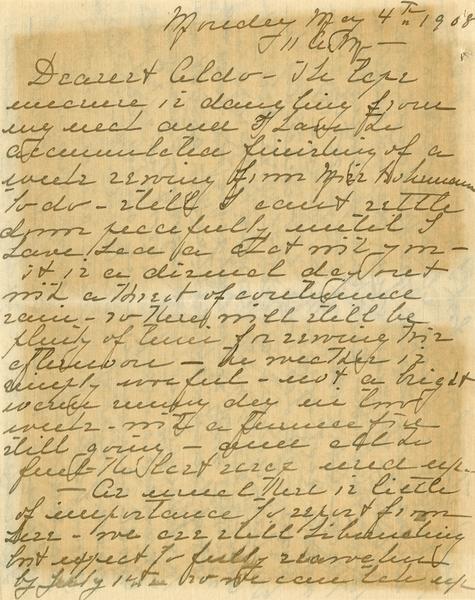 Monday May 4th 1908
11 A.M. —
Dearest Aldo - The tape
measure is dangling from
my neck and I have the
accumulated finishing of a
weeks sewing from Miss
to do - still I cant settle
down peacefully until I
have had a chat with you -
it is a dismal day out
with a threat of continuance
rain - so there will still be
plenty of time for sewing this
afternoon — The weather is
simply woeful - not a bright
warm sunny day in two
weeks - with a furnace fire
still going - and all the
fuel - the last used up -
— As usual there is little
of importance to report from
here - we are still hibernating
but expect to fully
by July 14th so we can take up